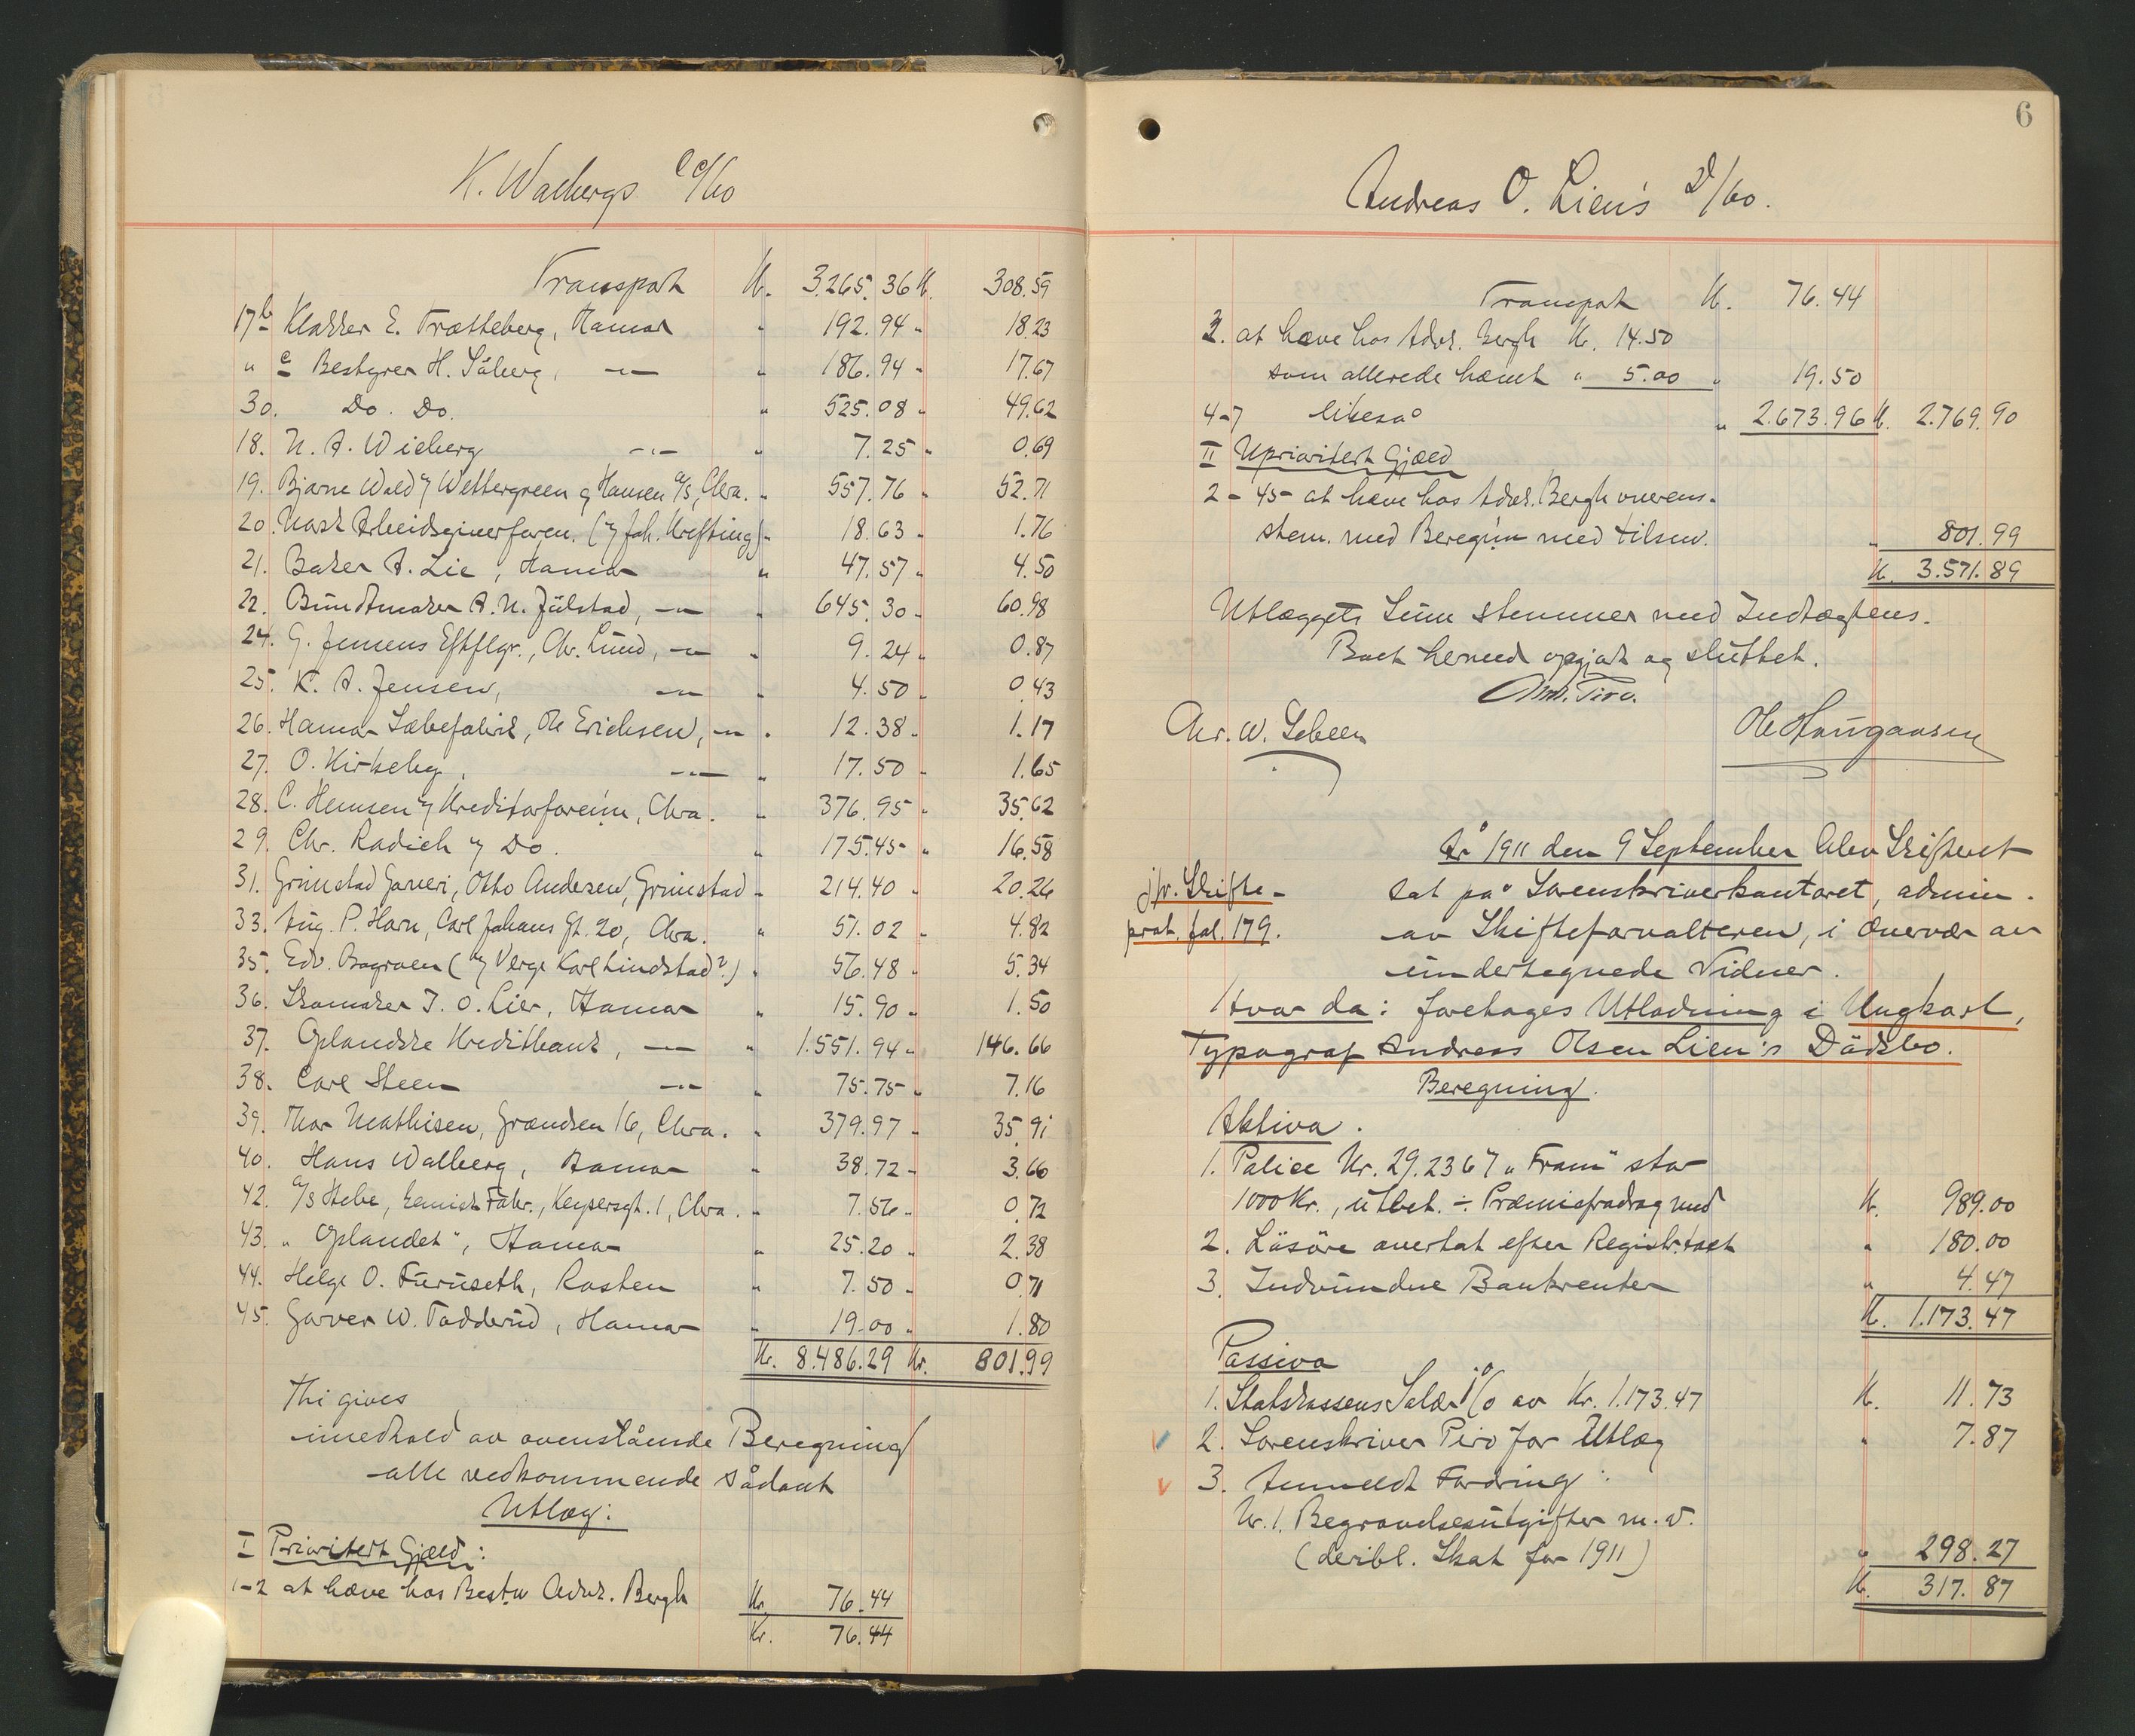 K. Walbergs C/bo
Transport Kr. 3.265.36 Kr. 308.59
17 b Klokker E. Trætteberg, Hamar " 192.94 " 18.23
" c Bestyrer H. Såberg, —"— " 186.94 " 17.67
30. Do. Do. " 525.08 " 49.62
18. N. A. Wieberg —"— " 7.25 " 0.69
19. Bjarne Wold v/ Wettergreen & Hansen A/S, Chra. " 557.76 " 52.71
20. Norsk Arbeidsgiverforen. (v/ Joh. Krefting) " 18.63 " 1.76
21. Baker A. Lie, Hamar " 47.57 " 4.50
22. Buntmaker A. N. Julstad, —"— " 645.30 " 60.98
24. G. Jensens Eftflgr., Chr. Lund, —"— " 9.24 " 0.87
25. K. A. Jensen, —"— " 4.50 " 0.43
26. Hamar Sæbefabrik, Ole Erichsen, —"— " 12.38 " 1.17
27. O. Kirkeby, —"— " 17.50 " 1.65
28. C. Hemsen v/ Kreditorforenin, Chra. " 376.95 " 35.62
29. Chr. Radich v/ Do. " 175.45 " 16.58
31. Grimstad Garveri, Otto Andersen, Grimstad " 214.40 " 20.26
33. Aug. P. Horn, Carl Johans Gt. 20, Chra. " 51.02 " 4.82
35. Edv. Bagroen (v/ Verge Karl Lindstad?) " 56.48 " 5.34
36. Skomaker J. O. Lier, Hamar " 15.90 " 1.50
37. Oplandske Kreditbank, —"— " 1.551.94 " 146.66
38. Carl Steen —"— " 75.75 " 7.16
39. Thor Mathisen, Grændsen 16, Chra. " 379.97 " 35.91
40. Hans Walberg, Hamar " 38.72 " 3.66
42. A/S Hebe, kemisk Fabr., Keysersgt. 1, Chra. " 7.56 " 0.72
43. "Oplandet", Hamar " 25.20 " 2.38
44. Helge O. Furuseth, Rasten " 7.50 " 0.71
45. Garver W. Fadderud, Hamar " 19.00 " 1.80
Kr. 8.486.29 Kr. 801.99
Thi gives
i medhold av ovenstående Beregning
alle vedkommende sådant
Utlæg:
I Prioritert Gjæld:
1-2 at hæve hos Best.v Advk. Bergh Kr. 76.44
Kr. 76.44
6
Andreas O. Lien's D/bo.
Transport Kr. 76.44
3. at hæve hos Advk. Bergh Kr. 14.50
som allerede hævet " 5.00 " 19.50
4-7 likeså " 2.673.96 Kr. 2.769.90
II Uprioritert Gjæld
2-45 at hæve hos Advk. Bergh overens-
stem. med Beregnin med tilsm. " 801.99
Kr. 3.571.89
Utlæggets Sum stemmer med Indtægtens.
Boet hermed opgjort og sluttet.
Ant. Piro.
Chr. W. Sebeen Ole Haugaasen
År 1911 den 9 September blev Skifteret
jfr. Skifte-
prot. fol. 179.
sat på Sorenskriverkontoret, admin.
av Skifteforvalteren, i Overvær av
undertegnede Vidner.
Hvor da: foretoges Utlodning i Ungkarl,
Typograf Andreas Olsen Lien's Dödsbo.
Beregning.
Aktiva.
1. Police Nr. 29.236 v/ "Fram" stor
1000 Kr., utbet. ÷ Præmiefradrag med Kr. 989.00
2. Lösöre overtat efter Registr.takt " 180.00
3. Indvundne Bankrenter " 4.47
Kr. 1.173.47
Passiva
1. Statskassens Salær 1% av Kr. 1.173.47 Kr. 11.73
2. Sorenskriver Piro for Utlæg " 7.87
3. Anmeldt Fordring:
Nr. 1. Begravelsesutgifter m. v.
(deribl. Skat for 1911) " 298.27
Kr. 317.87